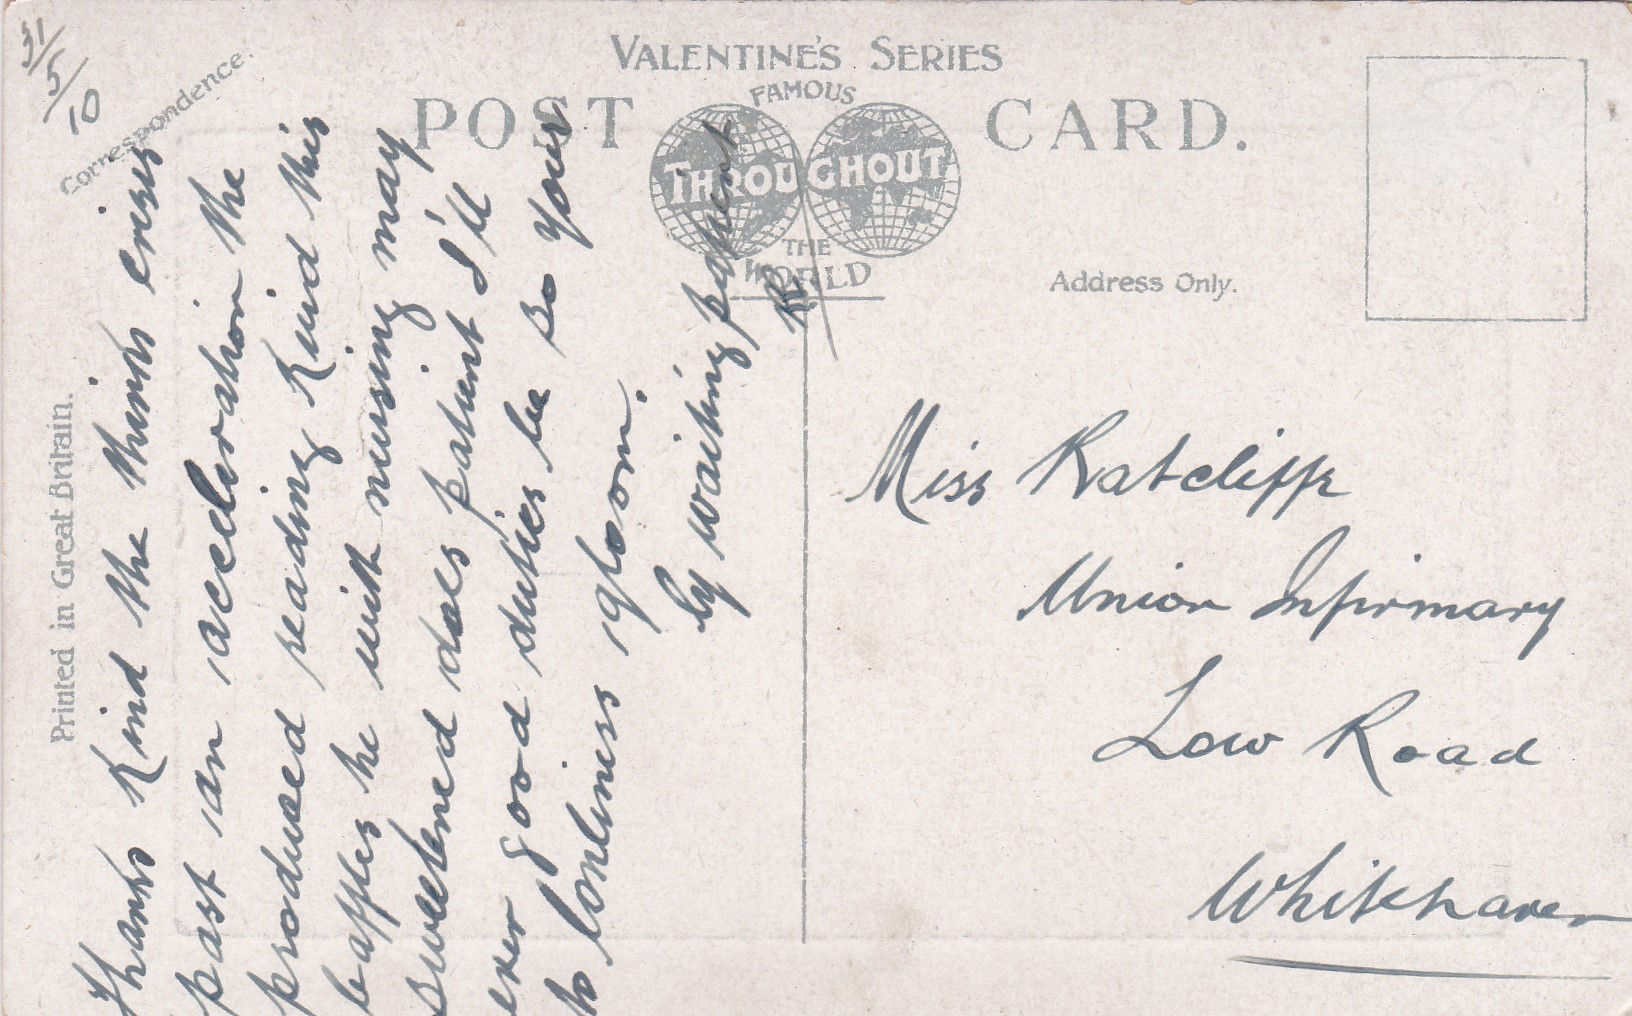 31/5/10
Correspondence.
VALENTINE'S SERIES
FAMOUS
POST CARD.
THROUGHOUT
THE
WORLD
Address Only.
Printed in Great Britain.
Thanks Kind the thinks crisis
past an acceleration the
produced reading Kind this
baffles he with nursing may
sweetened does patient I'll
ever good duties be so your
to loneliness gloom.
by waiting patient
Miss Ratcliffe
Union Infirmary
Low Road
Whitehaven